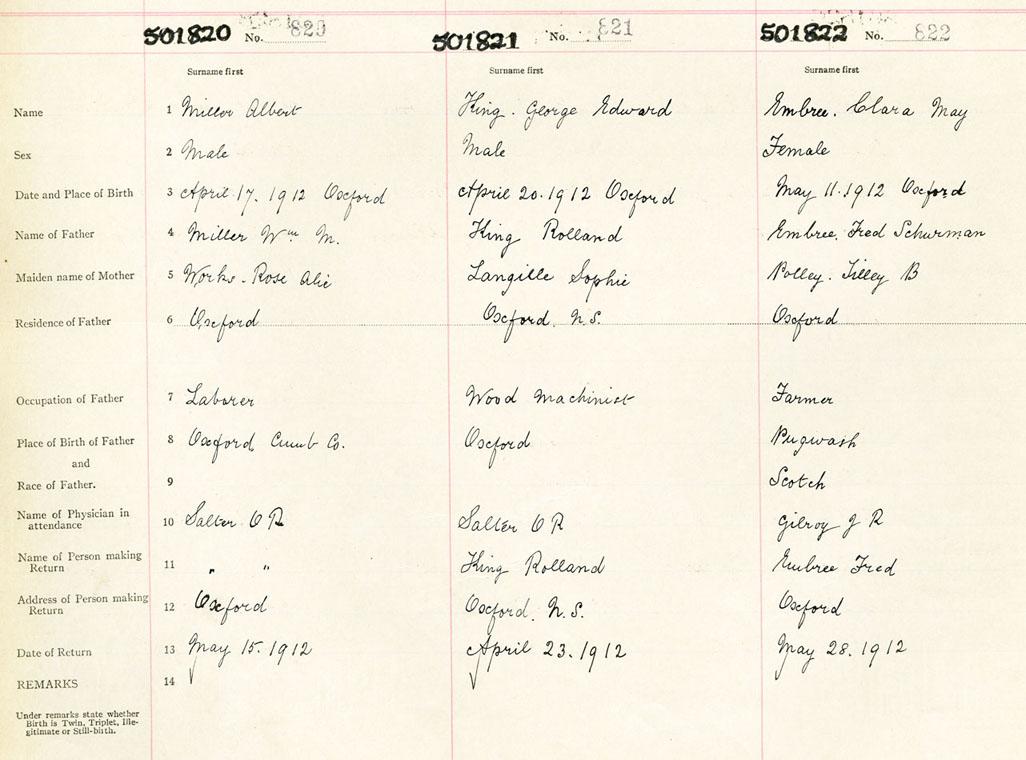 501820 No. 820 501821 No. 821 501822 No. 822
Surname first Surname first Surname first
Name 1 Miller Albert King. George Edward Embree. Clara May
Sex 2 Male Male Female
Date and Place of Birth 3 April. 17. 1912 Oxford April 20. 1912 Oxford May 11. 1912 Oxford
Name of Father 4 Miller Wm M. King Rolland Embree. Fred Schurman
Maiden name of Mother 5 Works. Rose Langille Sophie Polley. Tilley B
Residence of Father 6 Oxford Oxford, N.S. Oxford
Occupation of Father 7 Laborer Wood machinist Farmer
Place of Birth of Father 8 Oxford Cumb Co. Oxford Pugwash
and
Race of Father. 9 Scotch
Name of Physician in
attendance 10 Salter O R Salter O R Gilroy J R
Name of Person making
Return 11 " " King Rolland Embree Fred
Address of Person making
Return 12 Oxford Oxford, N.S. Oxford
Date of Return 13 May 15. 1912 April 23. 1912 May 28. 1912
REMARKS 14
Under remarks state whether
Birth is Twin, Triplet, Ille-
gitimate or Still-birth.